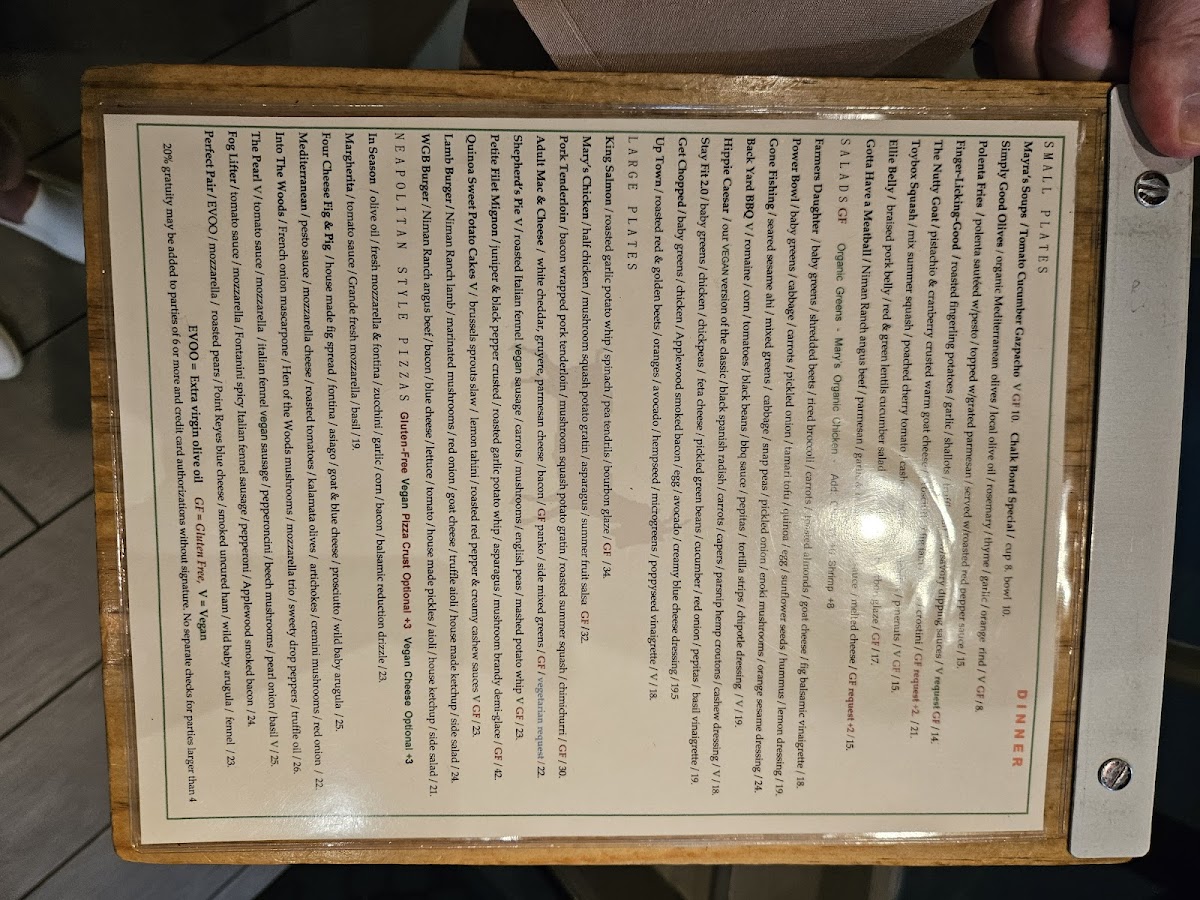 DINNER
SMALL PLATES
Mayra's Soups / Tomato Cucumber Gazpacho V GF 10. Chalk Board Special / cup 8. bowl 10.
Simply Good Olives / organic Mediterranean olives / local olive oil / rosemary / thyme / garlic / orange rind / V GF / 8.
Polenta Fries / polenta sautéed w/pesto / topped w/grated parmesan / served w/roasted red pepper sauce / 15.
Finger-Licking-Good / roasted fingerling potatoes / garlic / shallots / savory dipping sauces / V request GF / 14.
The Nutty Goat / pistachio & cranberry crusted warm goat cheese / crostini / GF request +2. / 21.
Toybox Squash / mix summer squash / poached cherry tomato / cash / pinenuts / V GF / 15.
Ellie Belly / braised pork belly / red & green lentils cucumber salad / glaze / GF / 17.
Gotta Have a Meatball / Niman Ranch angus beef / parmesan / garlic / sauce / melted cheese / GF request +2 / 15.
SALADS GF Organic Greens - Mary's Organic Chicken - Add Shrimp +8
Farmers Daughter / baby greens / shredded beets / riced broccoli / carrots / almonds / goat cheese / fig balsamic vinaigrette / 18.
Power Bowl / baby greens / cabbage / carrots / pickled onion / tamari tofu / quinoa / egg / sunflower seeds / hummus / lemon dressing / 19.
Gone Fishing / seared sesame ahi / mixed greens / cabbage / snap peas / pickled onion / enoki mushrooms / orange sesame dressing / 24.
Back Yard BBQ V / romaine / corn / tomatoes / black beans / bbq sauce / pepitas / tortilla strips / chipotle dressing / V / 19.
Hippie Caesar / our VEGAN version of the classic / black spanish radish / carrots / capers / parsnip hemp croutons / cashew dressing / V / 18.
Stay Fit 2.0 / baby greens / chicken / chickpeas / feta cheese / pickled green beans / cucumber / red onion / pepitas / basil vinaigrette / 19.
Get Chopped / baby greens / chicken / Applewood smoked bacon / egg / avocado / creamy blue cheese dressing / 19.5
Up Town / roasted red & golden beets / oranges / avocado / hempseed / microgreens / poppyseed vinaigrette / V / 18.
LARGE PLATES
King Salmon / roasted garlic potato whip / spinach / pea tendrils / bourbon glaze / GF / 34.
Mary's Chicken / half chicken / mushroom squash potato gratin / asparagus / summer fruit salsa GF / 32.
Pork Tenderloin / bacon wrapped pork tenderloin / mushroom squash potato gratin / roasted summer squash / chimichurri / GF / 30.
Adult Mac & Cheese / white cheddar, gruyere, parmesan cheese / bacon / GF panko / side mixed greens / GF / vegetarian request / 22.
Shepherd's Pie V / roasted Italian fennel vegan sausage / carrots / mushrooms / english peas / mashed potato whip V GF / 23.
Petite Filet Mignon / juniper & black pepper crusted / roasted garlic potato whip / asparagus / mushroom brandy demi-glace / GF / 42.
Quinoa Sweet Potato Cakes V / brussels sprouts slaw / lemon tahini / roasted red pepper & creamy cashew sauces V GF / 23.
Lamb Burger / Niman Ranch lamb / marinated mushrooms / red onion / goat cheese / truffle aioli / house made ketchup / side salad / 24.
WGB Burger / Niman Ranch angus beef / bacon / blue cheese / lettuce / tomato / house made pickles / aioli / house ketchup / side salad / 21.
NEAPOLITAN STYLE PIZZAS Gluten-Free Vegan Pizza Crust Optional +3 Vegan Cheese Optional +3
In Season / olive oil / fresh mozzarella & fontina / zucchini / garlic / corn / bacon / balsamic reduction drizzle / 23.
Margherita / tomato sauce / Grande fresh mozzarella / basil / 19.
Four Cheese Fig & Pig / house made fig spread / fontina / asiago / goat & blue cheese / prosciutto / wild baby arugula / 25.
Mediterranean / pesto sauce / mozzarella cheese / roasted tomatoes / kalamata olives / artichokes / cremini mushrooms / red onion / 22.
Into The Woods / French onion mascarpone / Hen of the Woods mushrooms / mozzarella trio / sweety drop peppers / truffle oil / 26.
The Pearl V / tomato sauce / mozzarella / italian fennel vegan sausage / pepperoncini / beech mushrooms / pearl onion / basil V / 25.
Fog Lifter / tomato sauce / mozzarella / Fontanini spicy Italian fennel sausage / pepperoni / Applewood smoked bacon / 24.
Perfect Pair / EVOO / mozzarella / roasted pears / Point Reyes blue cheese / smoked uncured ham / wild baby arugula / fennel / 23.
EVOO = Extra virgin olive oil GF = Gluten Free, V = Vegan
20% gratuity may be added to parties of 6 or more and credit card authorizations without signature. No separate checks for parties larger than 4